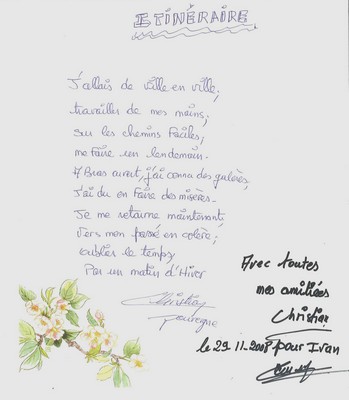 ETINÉRAIRE
J'allais de ville en ville,
travailler de mes mains,
sur les chemins faciles,
me faire un lendemain.
A Bras ouvert, j'ai connu des galères,
J'ai du en faire des misères.
Je me retourne maintenant,
Vers mon passé en colère,
oublier le temps
Par un matin d'Hiver
Christian
Avec toutes
mes amitiées
Christian
le 29.11.2008 pour Ivan